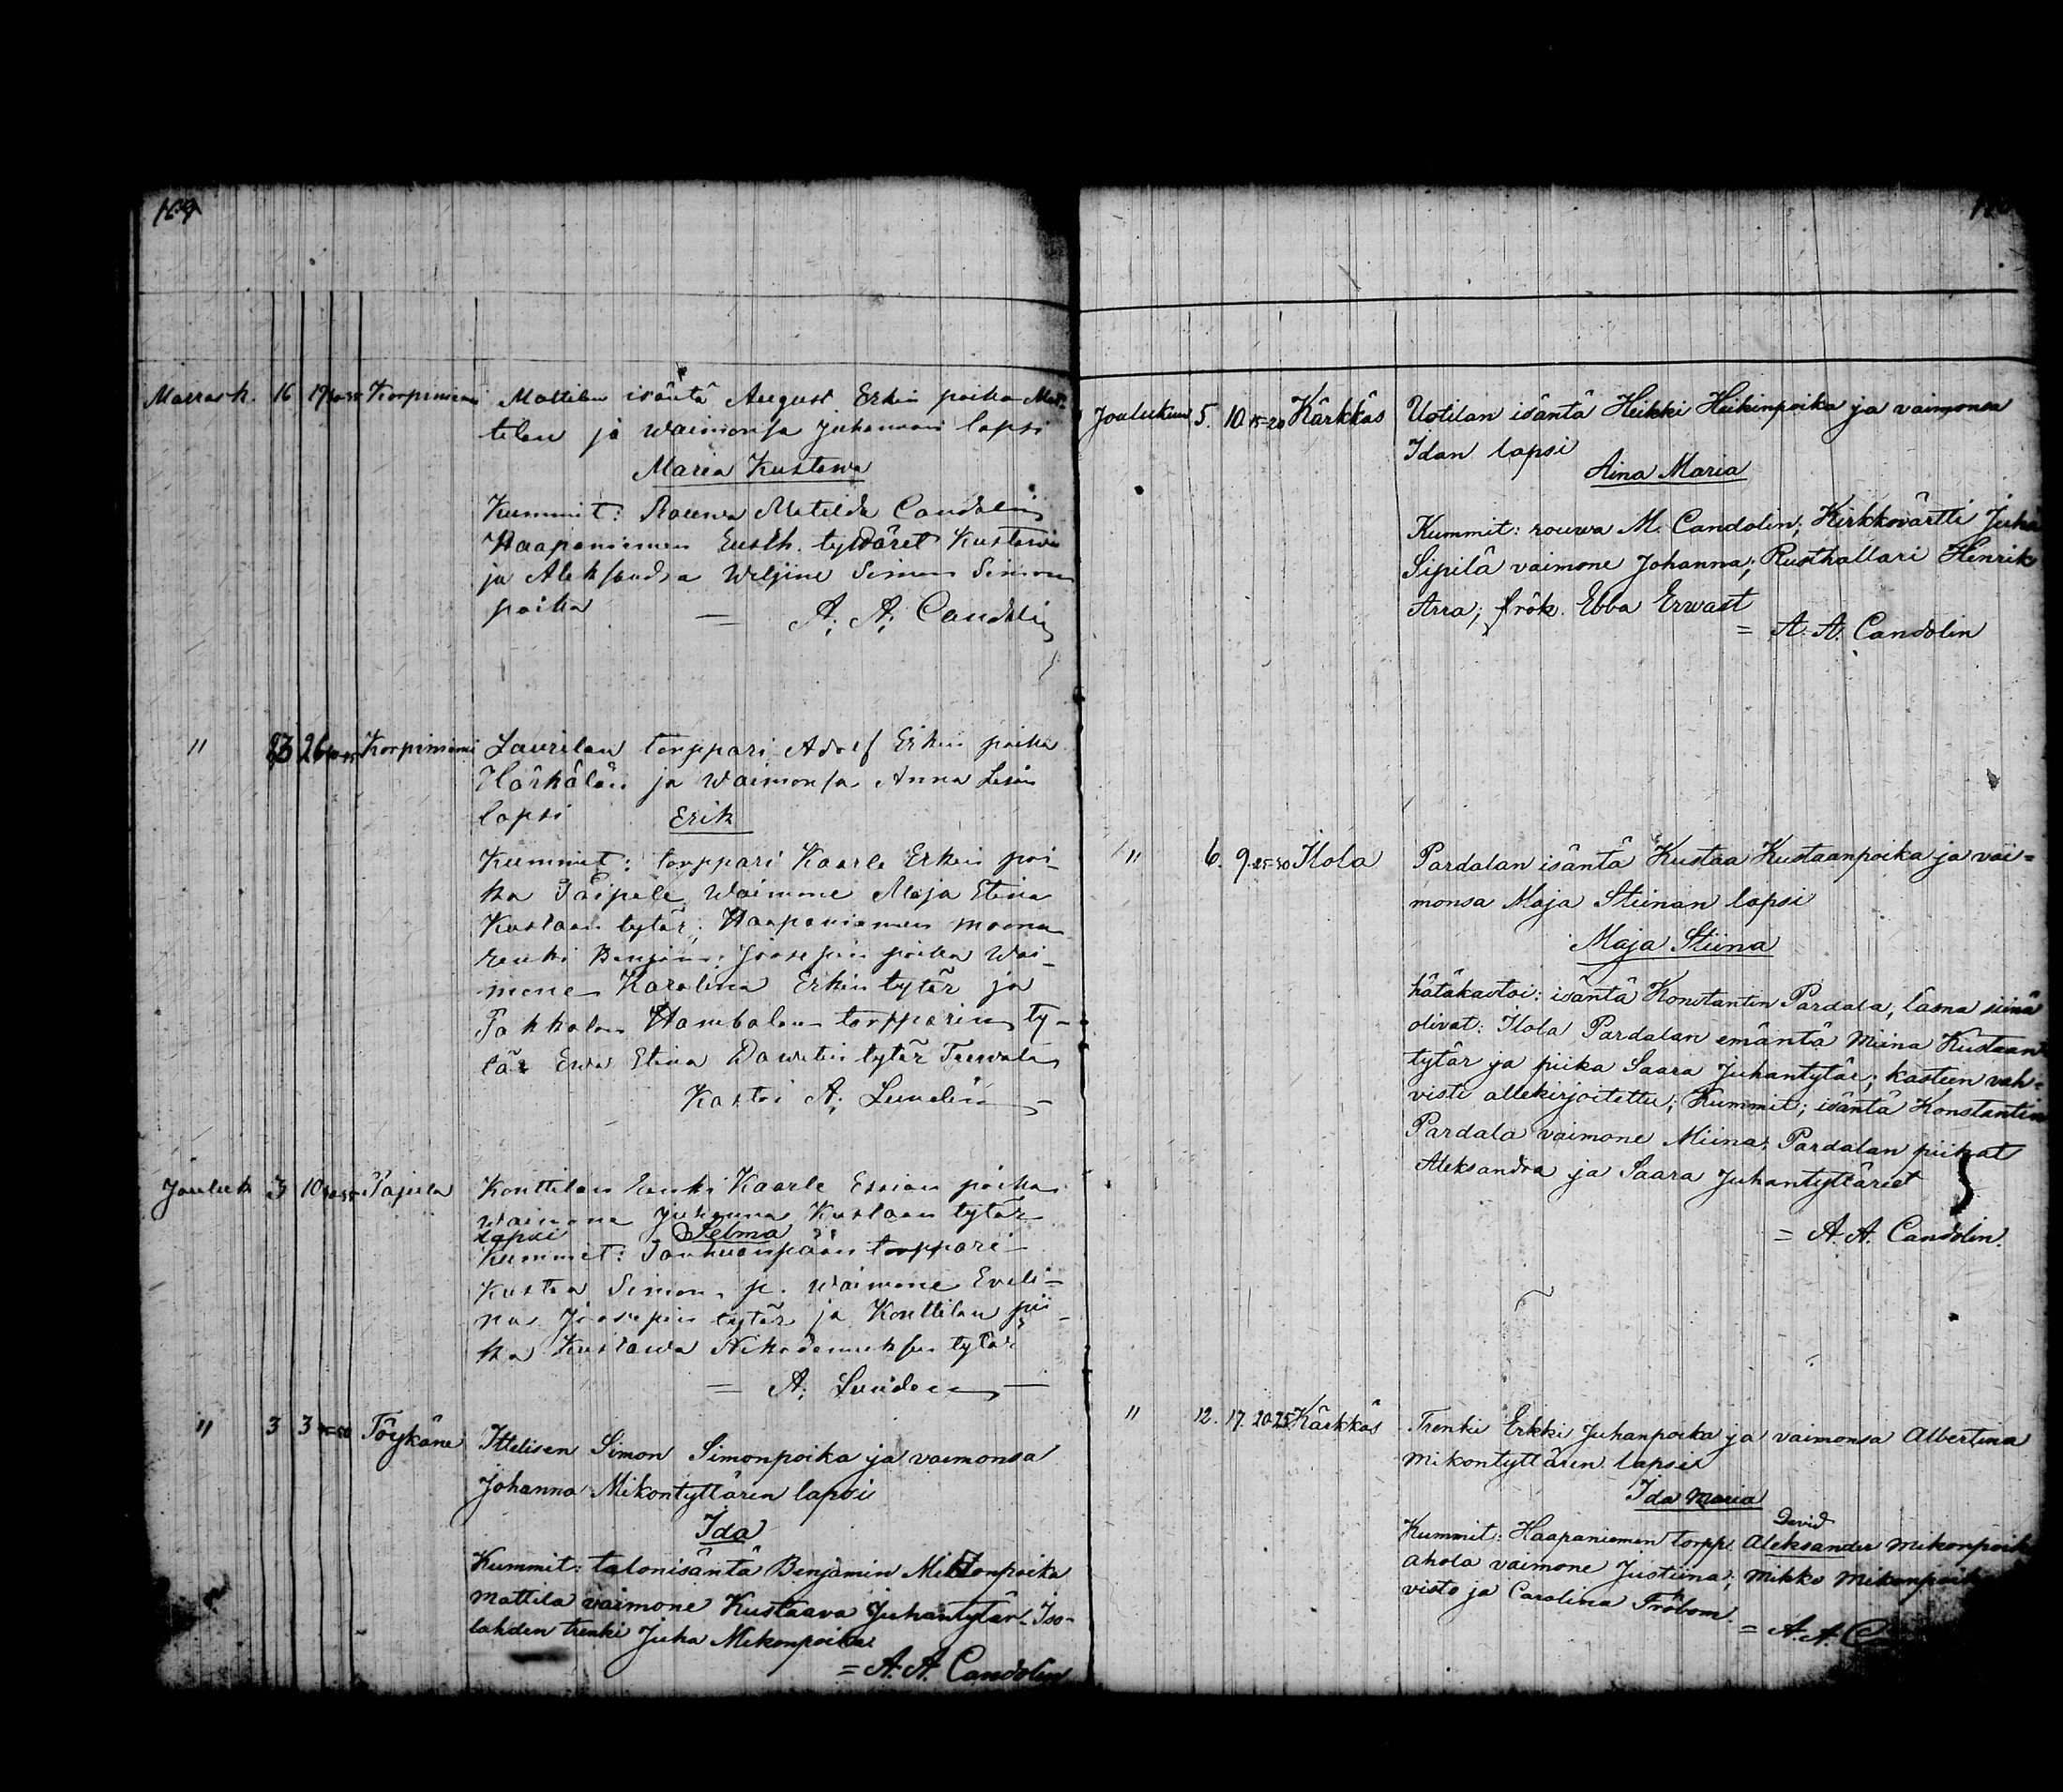 169
Marrask. 16 19 30-35 Korpiniemi Mattilan isäntä August Erkin poika Mat-
tilan ja waimonsa Juhannan lapsi
Maria Kustawa
Kummit: Rouwa Matilda Candolin
Haapaniemen Eusth. tyttäret Kustawa
ja Aleksandra Weljine Simon Simon
poika = A. A. Candolin
" 23 26 Korpiniemi Laurilan torppari Adolf Erkin poika
Härkälän ja waimonsa Anna Lisan
lapsi Erik
Kummit: torppari Kaarle Erkin poi-
ka Päipele Waimone Maja Stina
Kustaan tytär; Haapaniemen moona
renki Benjam. Joosepin poika Wai-
mone Karolina Erkin tytär ja
Pakkalan Hambalan torpparin ty-
tär Ewa Stina Dawitin tytär
Kastoi A. Lunden
Jouluk 3 10 Pajula Konttilan renki Kaarle Esaian poika
Waimone Juhanna Kustaan tytär
lapsi Selma
Kummit: torppari
Kustaa Simon. p. Waimone Eveli-
na Joosepin tytär ja Konttilan pii-
ka Kustawa Nikodemuksen tytär
= A. Lunden
" 3 3 Töykäne Ittelisen Simon Simonpoika ja vaimonsa
Johanna Mikontyttären lapsi
Ida
Kummit: talonisäntä Benjamin Mikonpoika
Mattila vaimone Kustaava Juhantytär Iso-
lahden trenki Juha Mikonpoika
= A. A. Candolin
Joulukuu 5. 10. 15=20 Kärkkäs Uotilan isäntä Heikki Heikinpoika ja vaimonsa
Idan lapsi
Aina Maria
Kummit: rouwa M. Candolin; Kirkkovärtti Juha
Sipilä vaimone Johanna; Rusthallari Henrik
Arra; frök. Ebba Erwast
= A. A. Candolin
" 6. 9. 25=30 Ilola Pardalan isäntä Kustaa Kustaanpoika ja vai=
monsa Maja Stiinan lapsi
Maja Stiina
hätäkastoi: isäntä Konstantin Pardala, läsna siinä
olivat: Ilola Pardalan emäntä Miina Kustaan
tytär ja piika Saara Juhantytär; kasteen vah=
visti allekirjoitettu; Kummit; isäntä Konstantin
Pardala vaimone Miina; Pardalan piikat
Aleksandra ja Saara Juhantyttäret
= A. A. Candolin.
" 12. 17. 20-25 Kärkkäs Trenki Erkki Juhanpoika ja vaimonsa Albertina
Mikontyttären lapsi
Ida Maria
David
Kummit: Haapaniemen torpp. Aleksander Mikonpoik
Ahola vaimone Justiina; Mikko Mikonpoik
visto ja Carolina Fröbom.
= A. A. C